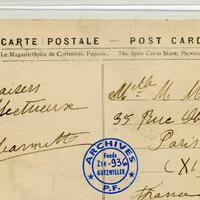 CARTE POSTALE — POST CARD
Le Magasin Spitz de Curiosités, Papeete.
The Spitz Curio Store, Papeete
Melle M. M
35 Rue
Paris
(X
France
ARCHIVES
Fonds
Zte-936
GUTZWILLER
P.F.